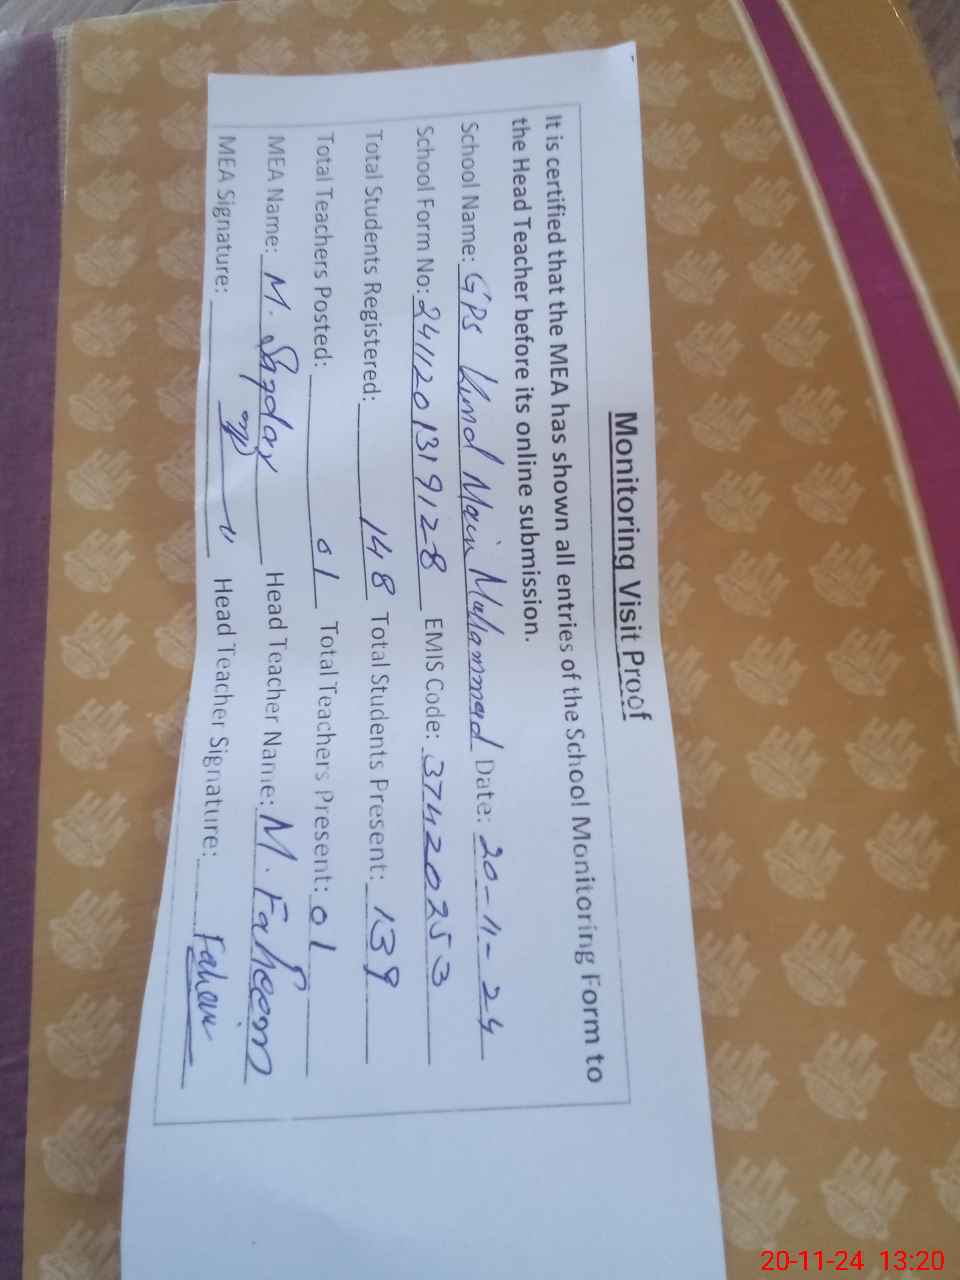 Monitoring Visit Proof
It is certified that the MEA has shown all entries of the School Monitoring Form to
the Head Teacher before its online submission.
School Name: GPS Kund Main Muhammad Date: 20-11-24
School Form No: 2411201319128 EMIS Code: 37420253
Total Students Registered: 148 Total Students Present: 139
Total Teachers Posted: 01 Total Teachers Present: 01
MEA Name: M. Safdar Head Teacher Name: M. Faheem
MEA Signature: Head Teacher Signature: Faheem
20-11-24 13:20